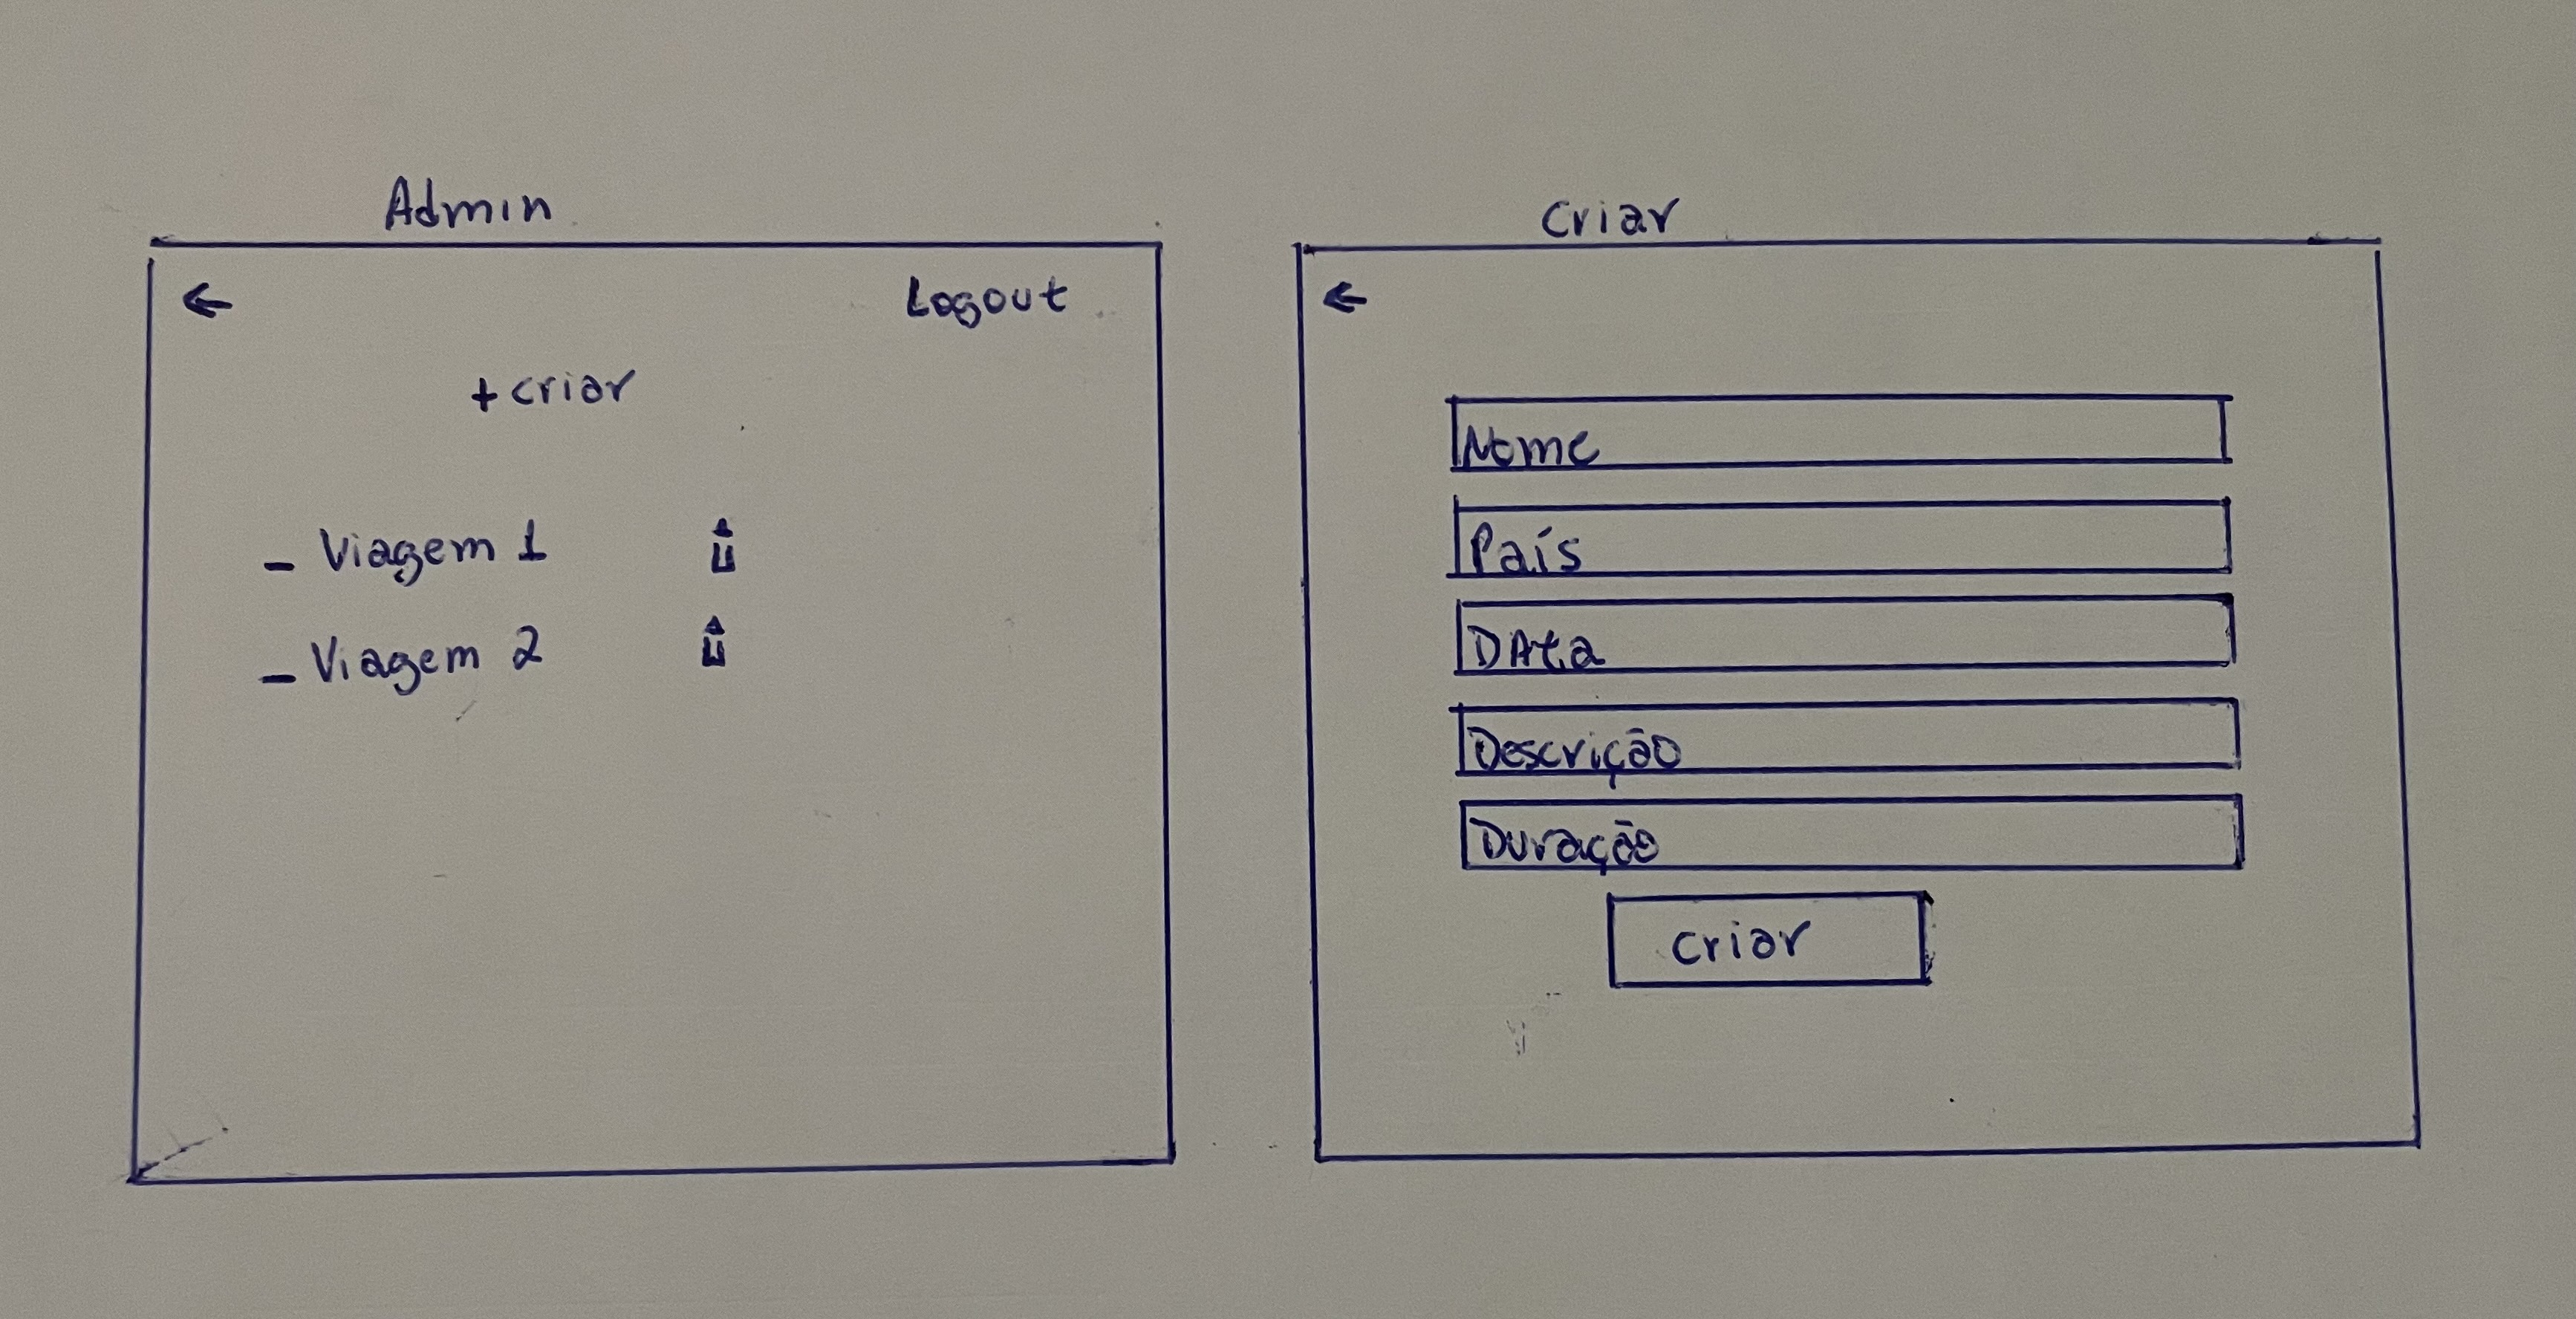 Admin
← Logout
+ criar
- Viagem 1
- Viagem 2
Criar
←
Nome
País
DAta
Descrição
Duração
criar